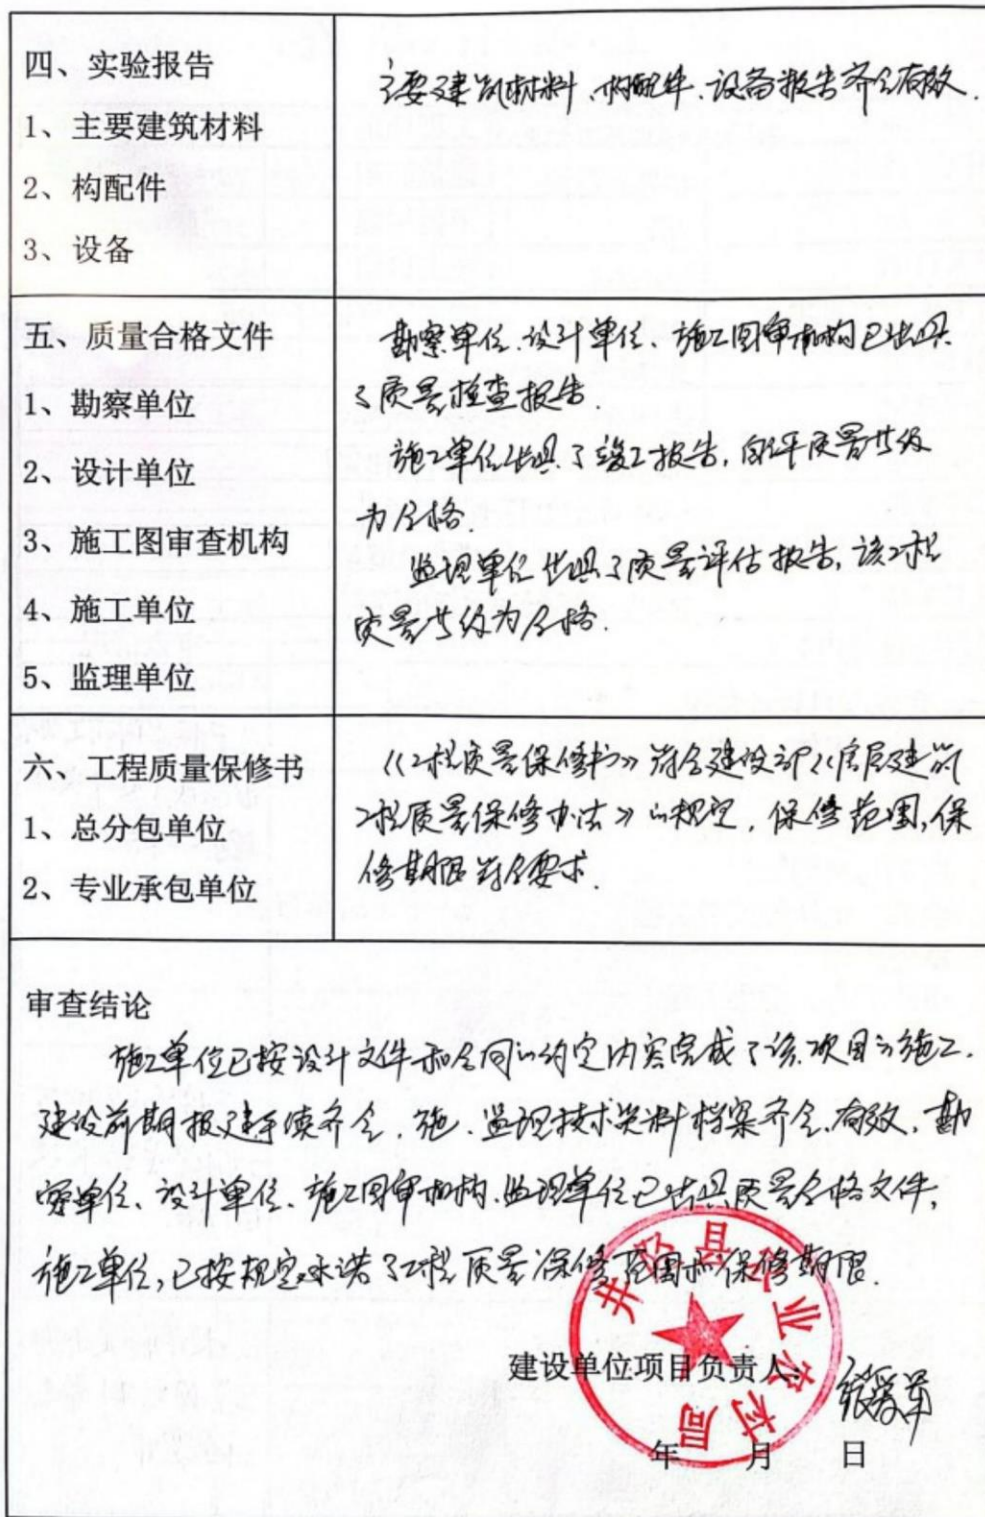 四、实验报告
1、主要建筑材料
2、构配件
3、设备
主要建筑材料、构配件、设备报告齐全有效.
五、质量合格文件
1、勘察单位
2、设计单位
3、施工图审查机构
4、施工单位
5、监理单位
勘察单位、设计单位、施工图审机构已出具
了质量检查报告.
施工单位出具了竣工报告,自评质量等级
为合格.
监理单位出具了质量评估报告,该工程
质量等级为合格.
六、工程质量保修书
1、总分包单位
2、专业承包单位
《工程质量保修书》符合建设部《房屋建筑
工程质量保修办法》的规定,保修范围,保
修期限符合要求.
审查结论
施工单位已按设计文件和合同的约定内容完成了该项目的施工.
建设前期报建手续齐全.施.监理技术资料档案齐全.有效.勘
察单位、设计单位、施工图审机构、监理单位已出具质量合格文件,
施工单位,已按规定承诺了工程质量保修范围和保修期限.
县农业农村局
建设单位项目负责人
年 月 日